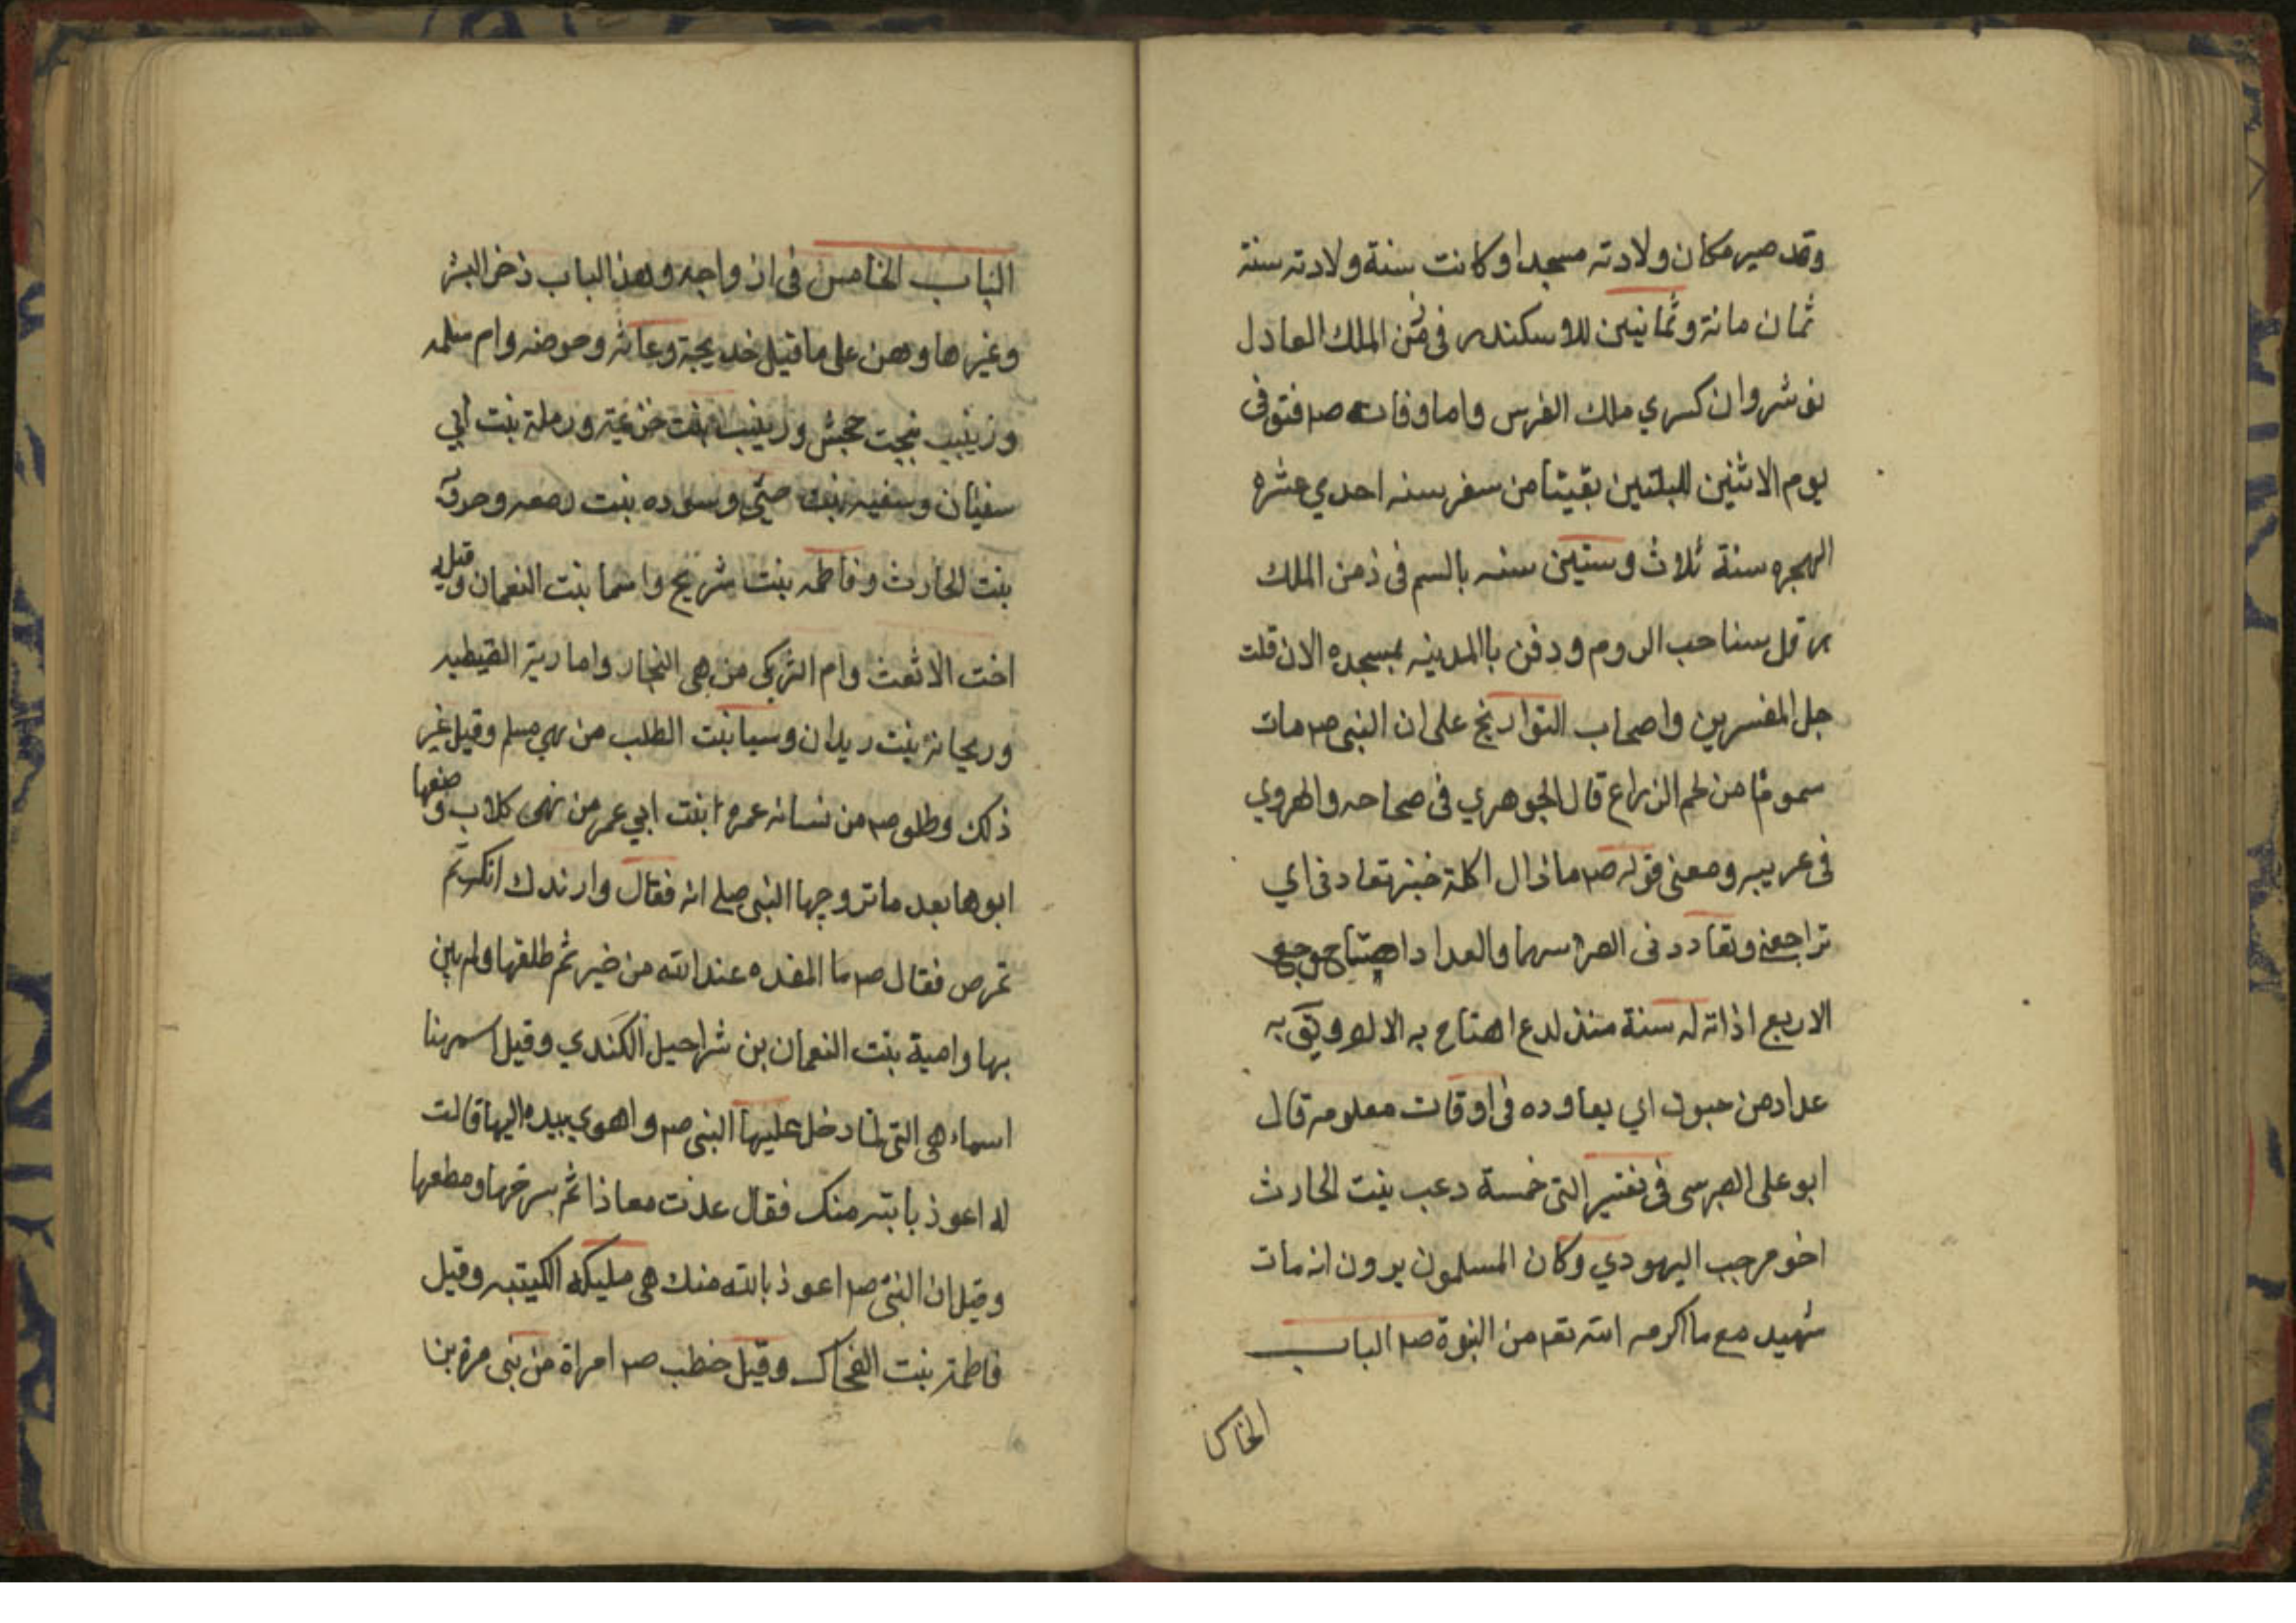 وقد صير مكان ولادته مسجدا وكانت سنة ولادته سنة
ثمان مائة وثمانين للاسكندر في زمن الملك العادل
نوشروان كسري ملك الفرس واما وفاته صم فتوفى
يوم الاثنين لليلتين بقيتا من سفر سنه احدي عشره
الهجره سنة ثلاث وستين سنه بالسم في ذمن الملك
هرقل سناحب الروم ودفن باالمدينه بمسجده الان قلت
جل المفسرين واصحاب التواريخ على ان النبي صم مات
سموما من لحم الزراع قال الجوهري في صحاحه والهروي
في عريبه ومعنى قوله صم ماذال اكلة خبنر تعادنى اي
تراجعني وتعاددنى
الاربع اذا اته له سنة منذ لدع اهتاج به الالم ويقي به
عداد من جنون اي يعاوده في اوقات معلومه قال
ابو على الهبرسى في تفسير التى خمسة دعب بنت الحارث
اخو مرحب اليهودي وكان المسلمون يرون انه مات
شهيد مع ما اكرمه الله تعم من النبوة صم الباب
الخامس
الباب الخامس في ازواجه وهذا الباب ذخر البشر
وغيرها وهن على ما قيل خديجة وعائشه وحوضه وام سلمه
وزينب بنجت حجش وزينب بنت خزعية ورملة بنت ابي
سفيان وسفيه بنت حيي وسوده بنت
بنت الحارث وفاطمه بنت شريح واسما بنت النعمان وقيل
اخت الاثعث وام التركى من هى النجار واماريّة القيطيه
وريحانة بنت ريدان وسيا بنت الطلب من بني مسلم وقيل غير
ذلك وطلق صم من نسائه عمرة ابنت ابي عمر من نهى كلاب وصفها
ابوها بعد ما تزوجها النبي صلى الله فقال وازندك انكرتم
تمرص فقال صم ما المغده عند الله من خير ثم طلقها ولم يبن
بها وامية بنت النعمان بن شراحيل الكندي وقيل اسمهنا
اسماء هى التى لما دخل عليها النبي صم واهوي بيده اليها قالت
له اعوذ بالله منك فقال عذت معاذا ثم سرحها ومطعها
وقيل ان النبي صم اعوذ بالله منك هى مليكه الكيتبه وقيل
فاطمة بنت الضحاك وقيل خطب صم امراة من بني مرة بن